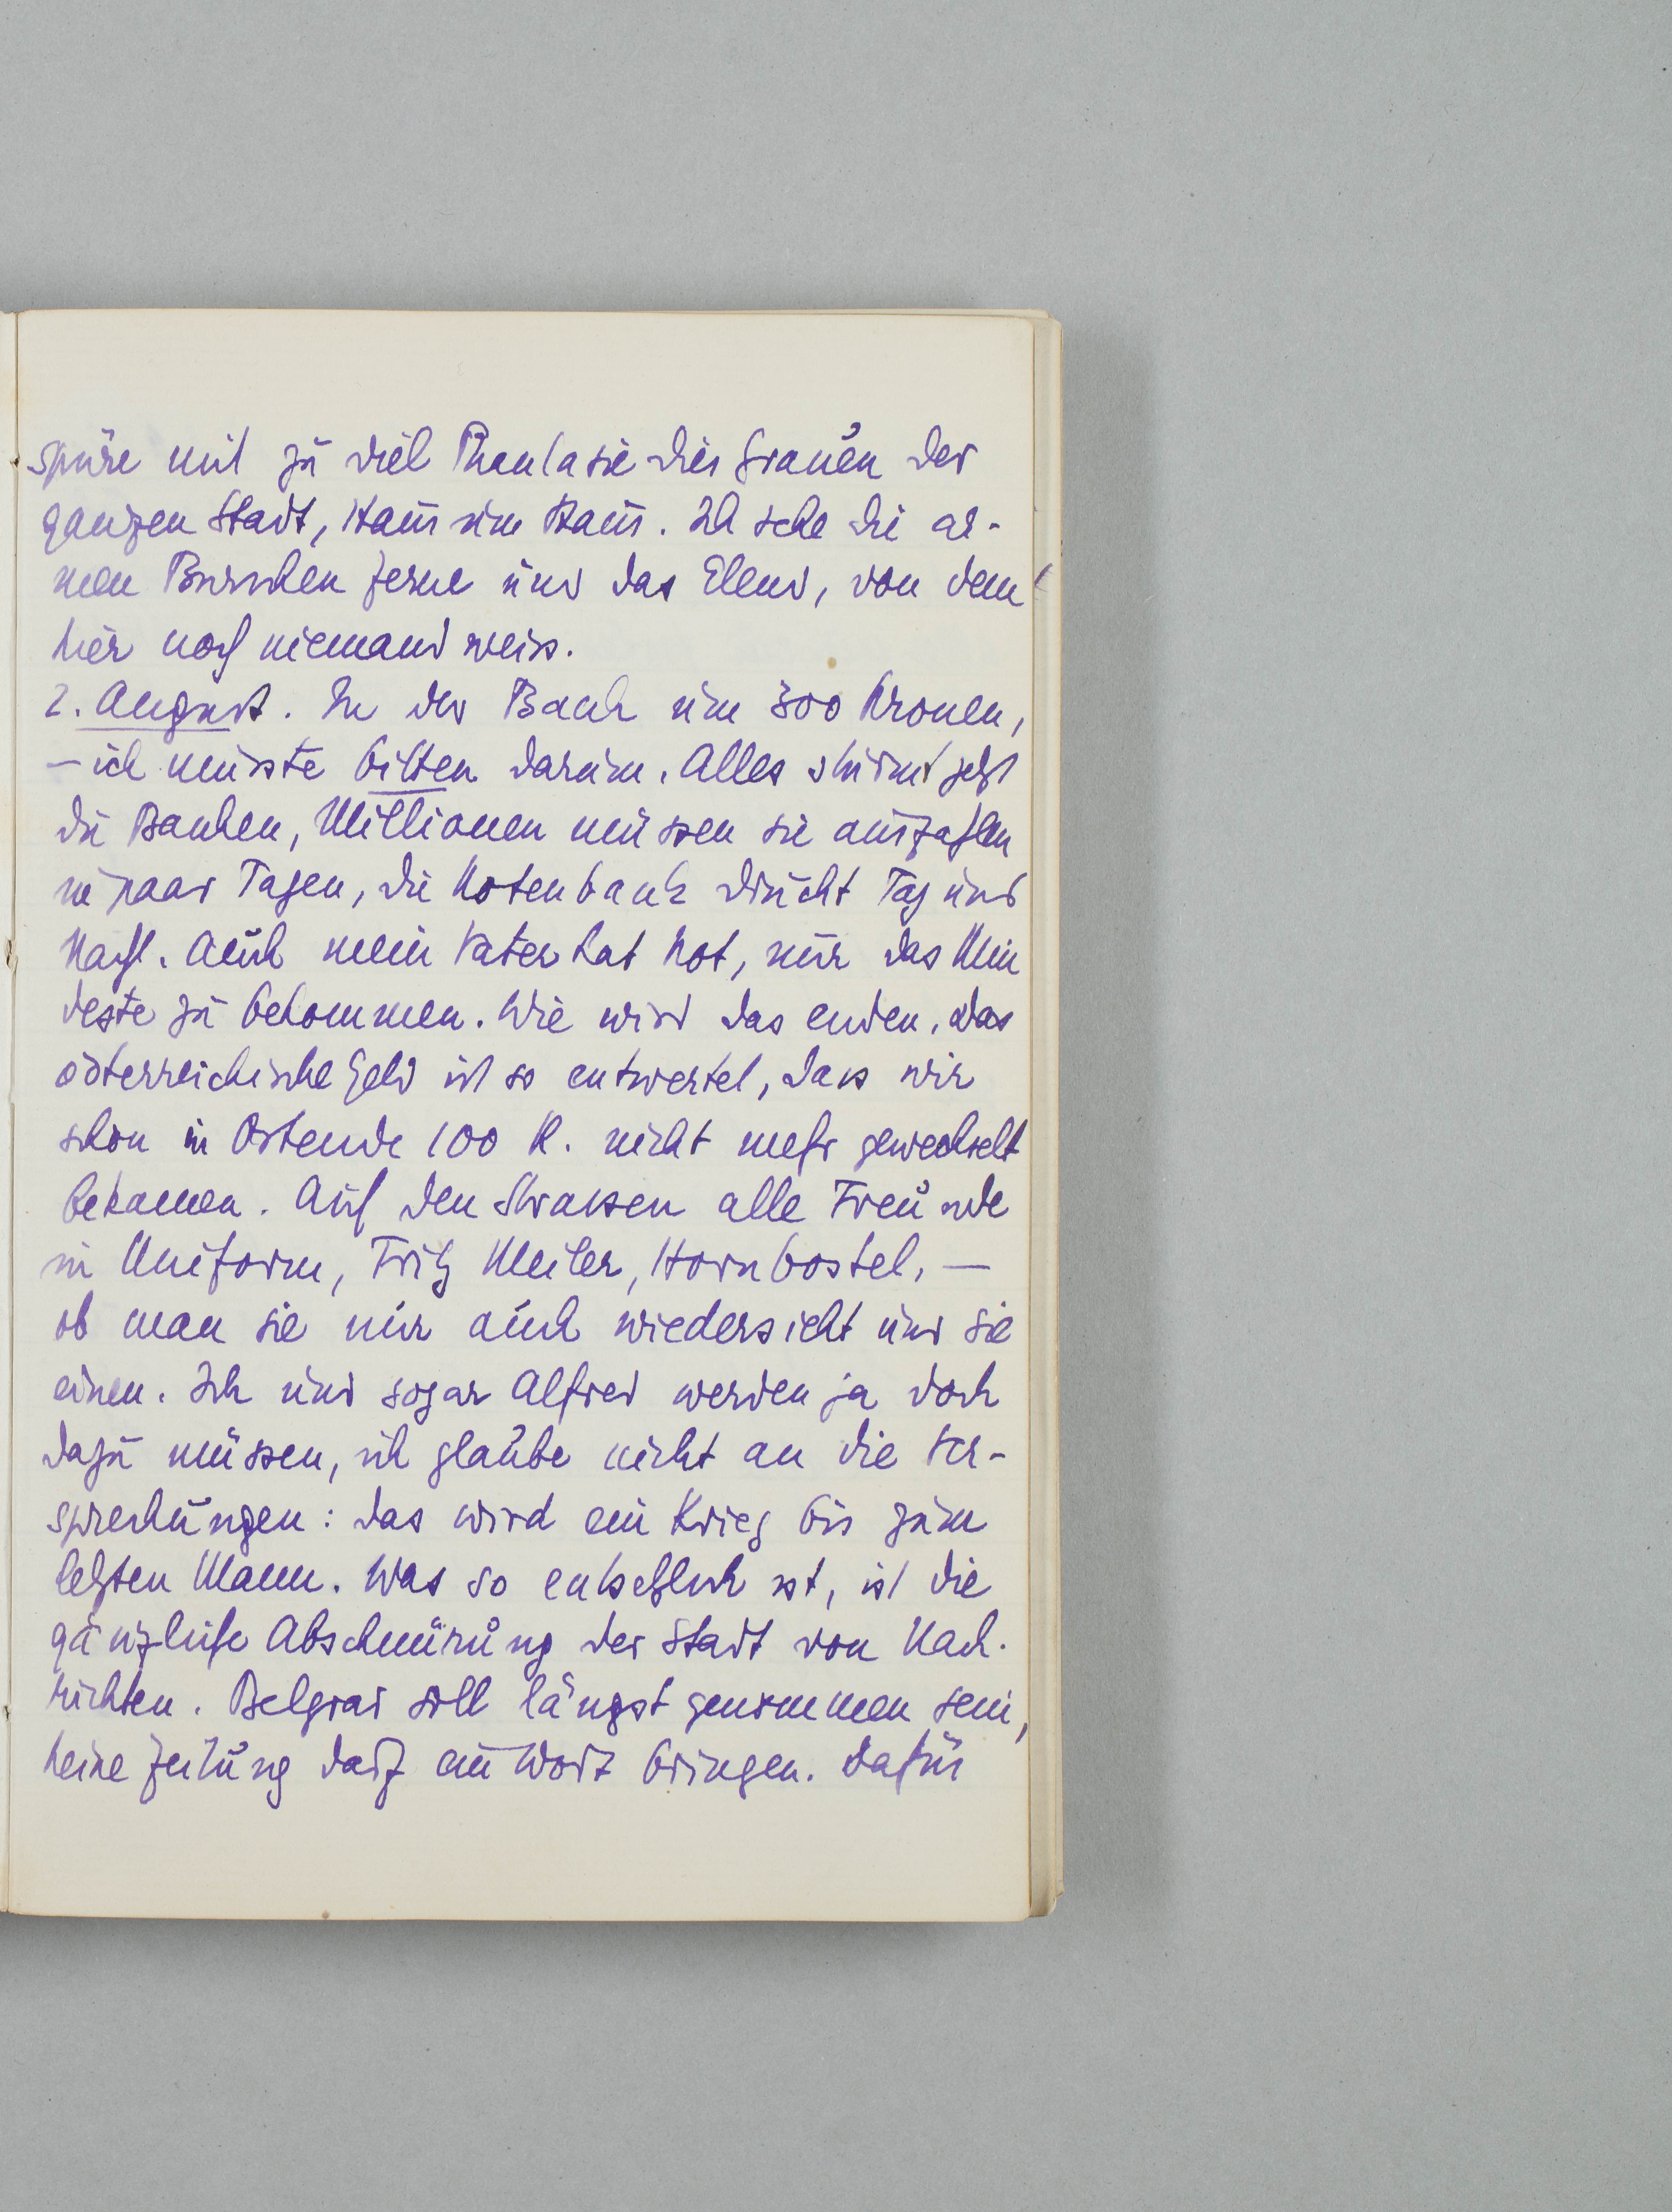 spüre mit zu viel Phantasie dies Grauen der
ganzen Stadt, Haus um Haus. Ich sehe die ar-
men Burschen ferne und das Elend, von dem
hier noch niemand weiss.
2. August. In der Bank um 300 Kronen,
– ich musste bitten darum. Alles stürmt jetzt
die Banken, Millionen müssen sie auszahlen
in paar Tagen, die Notenbank druckt Tag und
Nacht. Auch mein Vater hat Not, nur das Min
deste zu bekommen. Wie wird das enden, das
österreichische Geld ist so entwertet, dass wir
schon in Ostende 100 K. nicht mehr gewechselt
bekamen. Auf den Strassen alle Freunde
in Uniform, Fritz Meiler, Hornbostel, –
ob man sie nur auch wiedersieht und sie
einen. Ich und sogar Alfred werden ja doch
dazu müssen, ich glaube nicht an die Ver-
sprechungen: das wird ein Krieg bis zum
letzten Mann. Was so entsetzlich ist, ist die
gänzliche Abschnürung der Stadt von Nach-
richten. Belgrad soll längst genommen sein,
keine Zeitung darf ein Wort bringen. Dafür